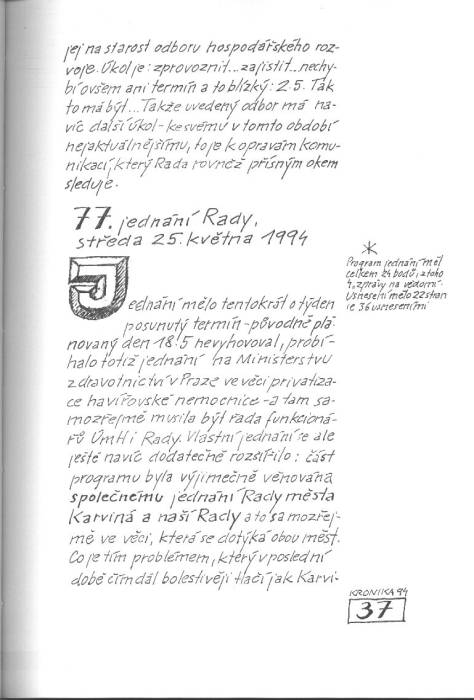 jej na starost odboru hospodářského roz-
voje. Úkol je: zprovoznit...zajistit...nechy-
bí ovšem ani termín a to blízký: 2.5. Tak
to má být... Takže uvedený odbor má na-
víc další úkol - ke svému v tomto období
nejaktuálnějšímu, to je k opravám komu-
nikací, který Rada rovněž přísným okem
sleduje.
77. jednání Rady,
středa 25. května 1994
Jednání mělo tentokrát o týden
posunutý termín - původně plá-
novaný den 18.5 nevyhovoval, probí-
halo totiž jednání na Ministerstvu
zdravotnictví v Praze ve věci privatiza-
ce havířovské nemocnice - a tam sa-
mozřejmě musila být řada funkcioná-
řů ÚmH i Rady. Vlastní jednání se ale
ještě navíc dodatečně rozšířilo: část
programu byla výjimečně věnována
společnému jednání Rady města
Karviná a naší Rady a to samozřej-
mě ve věci, která se dotýká obou měst.
Co je tím problémem, který v poslední
době čím dál bolestivěji tlačí jak Karvi-
*
Program jednání měl
celkem 24 bodů, z toho
4 zprávy na vědomí.
Usnesení mělo 22 stran
s 36 usneseními
KRONIKA 94
37